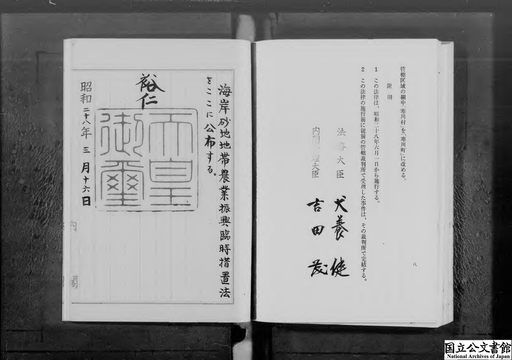 管轄区域の欄中「寒川村」を「寒川町」に改める。
附則
1 この法律は、昭和二十八年六月一日から施行する。
2 この法律の施行前に従前の管轄裁判所で受理した事件は、その裁判所で完結する。
法務大臣 犬養健
内閣総理大臣 吉田茂
海岸砂地地帯農業振興臨時措置法
をここに公布する。
裕仁
天皇
御璽
昭和二十八年三月十六日
国立公文書館
National Archives of Japan